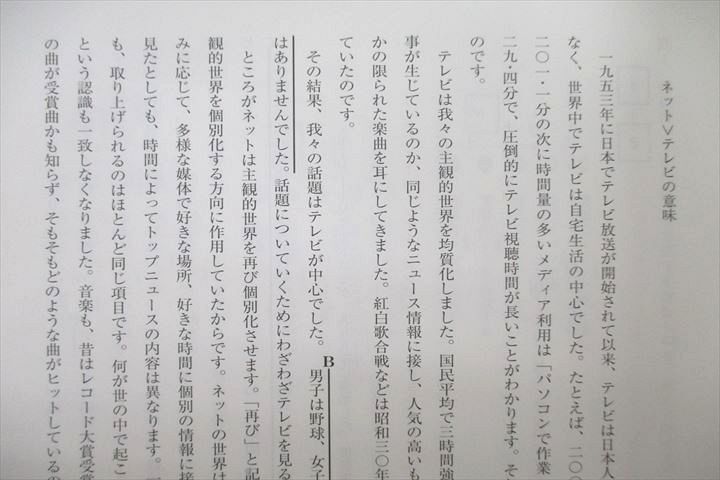 ネット＞テレビの意味
一九五三年に日本でテレビ放送が開始されて以来、テレビは日本人
なく、世界中でテレビは自宅生活の中心でした。たとえば、二〇〇
二〇一・一分の次に時間量の多いメディア利用は「パソコンで作業
二九・四分で、圧倒的にテレビ視聴時間が長いことがわかります。そ
のです。
テレビは我々の主観的世界を均質化しました。国民平均で三時間強
事が生じているのか、同じようなニュース情報に接し、人気の高いも
かの限られた楽曲を耳にしてきました。紅白歌合戦などは昭和三〇年
ていたのです。
その結果、我々の話題はテレビが中心でした。B男子は野球、女子
はありませんでした。話題についていくためにわざわざテレビを見る
ところがネットは主観的世界を再び個別化させます。「再び」と記
観的世界を個別化する方向に作用していたからです。ネットの世界は
みに応じて、多様な媒体で好きな場所、好きな時間に個別の情報に接
見たとしても、時間によってトップニュースの内容は異なります。一
も、取り上げられるのはほとんど同じ項目です。何が世の中で起こ
という認識も一致しなくなりました。音楽も、昔はレコード大賞受賞
の曲が受賞曲かも知らず、そもそもどのような曲がヒットしているの